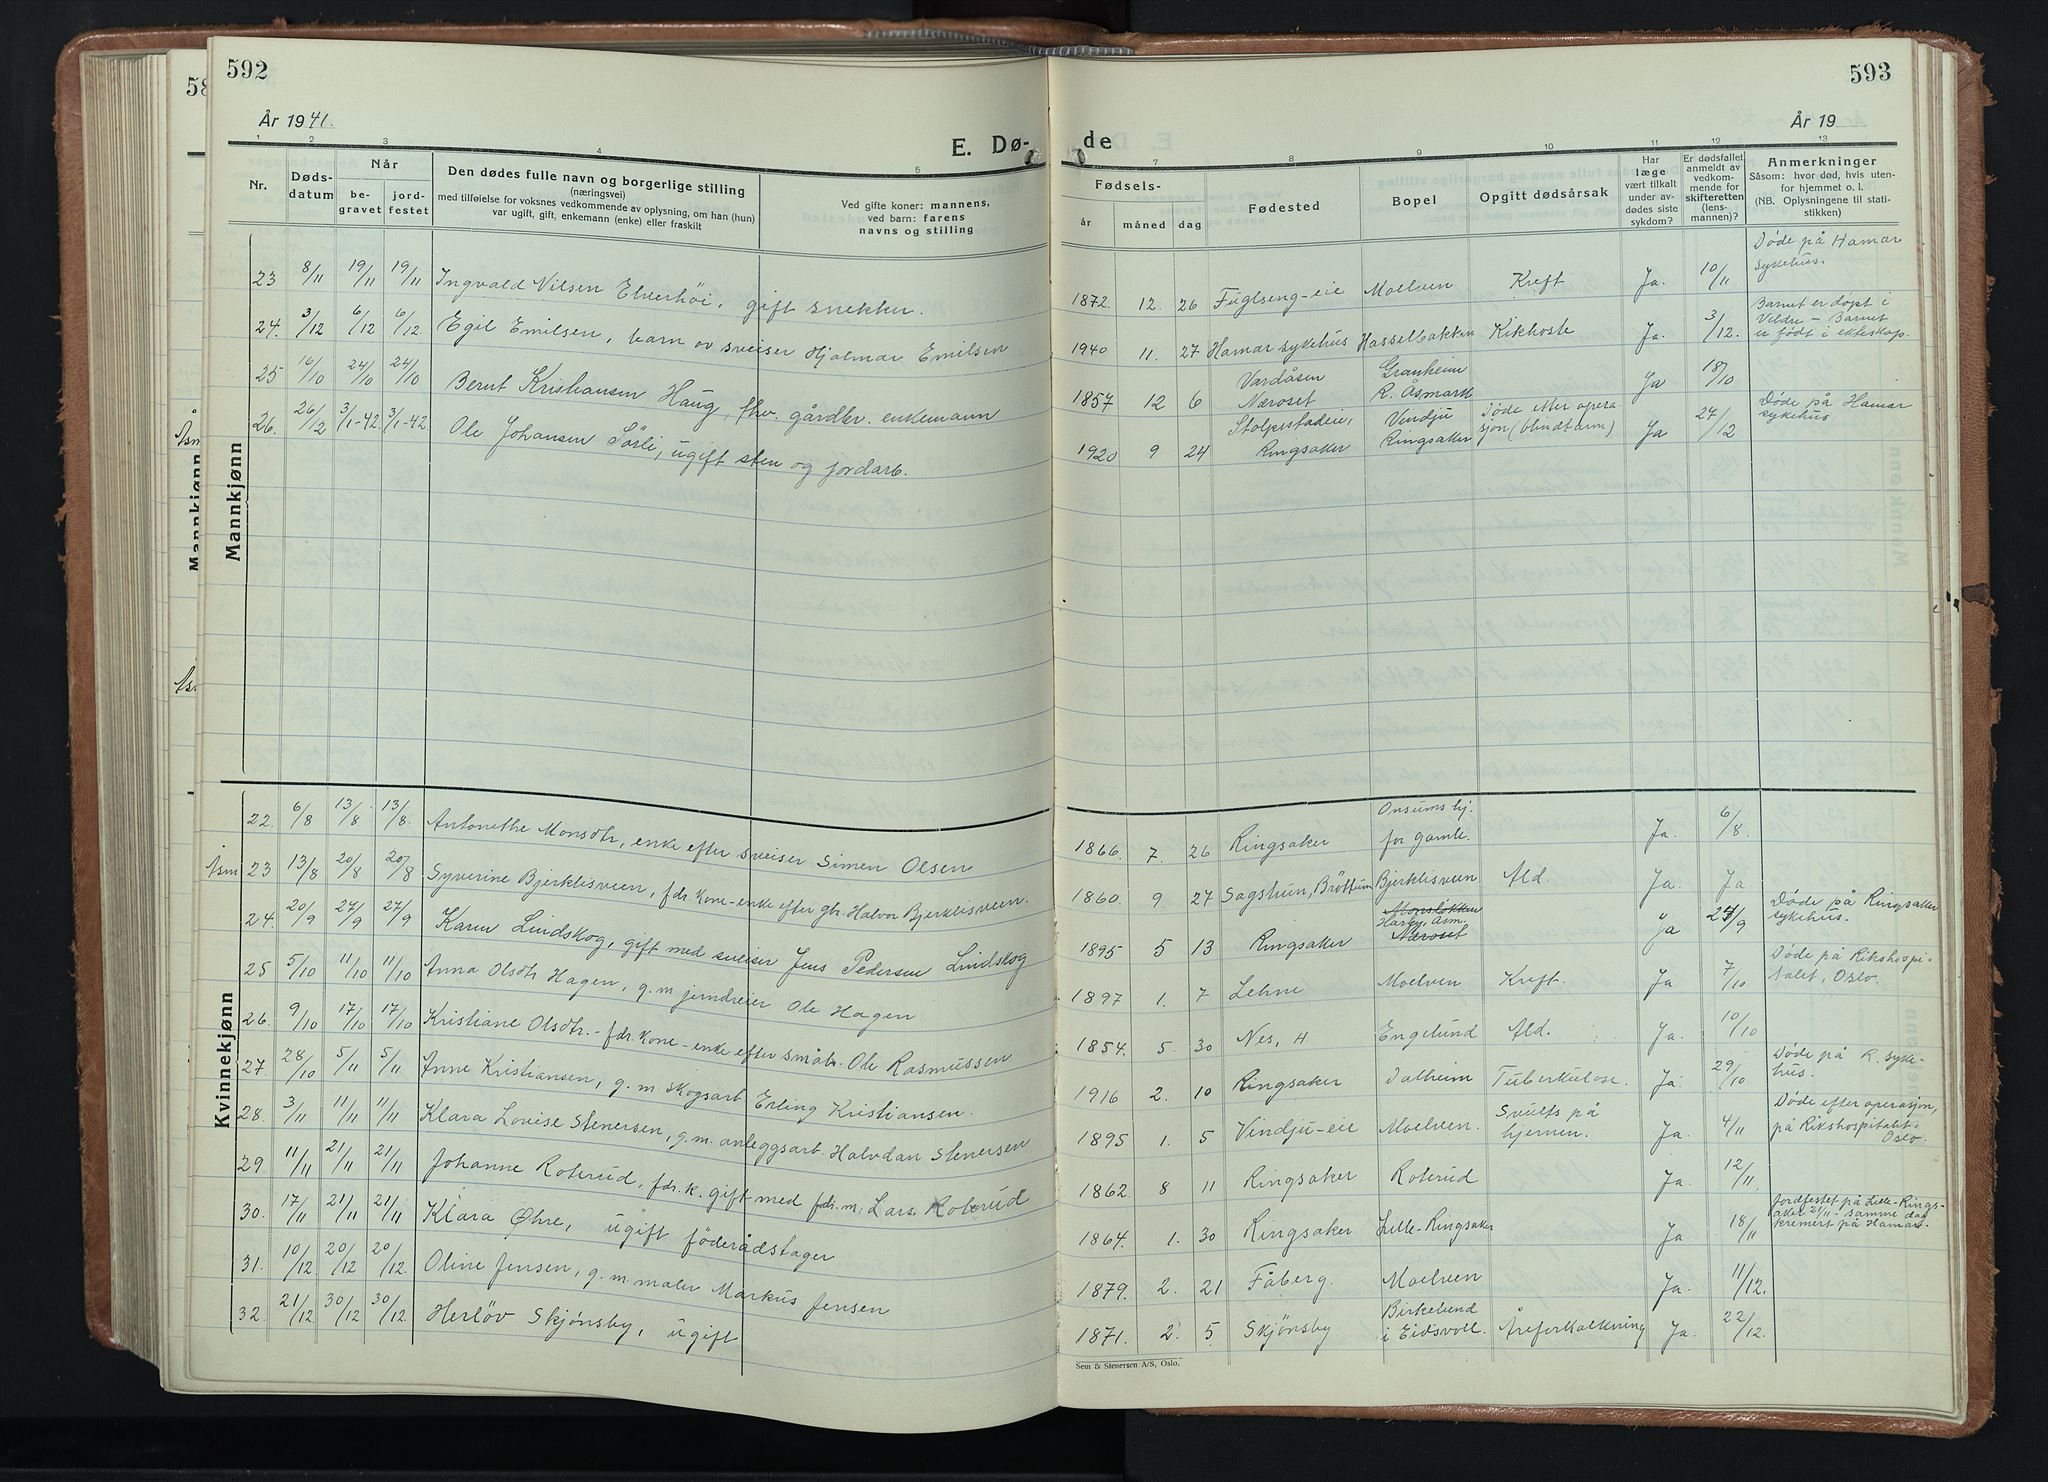 592
År 1941.
E. Dø-
1 2 3 4 5
Nr.
Døds-
datum
Når
be-
gravet
jord-
festet
Den dødes fulle navn og borgerlige stilling
(næringsvei)
med tilføielse for voksnes vedkommende av oplysning, om han (hun)
var ugift, gift, enkemann (enke) eller fraskilt
Ved gifte koner: mannens,
ved barn: farens
navns og stilling
Mannkjønn
23 8/11 19/11 19/11 Ingvald Nilsen Elverhöi, gift snekker.
24. 3/12 6/12 6/12. Egil Emilsen, barn av sveiser Hjalmar Emilsen
25 16/10 24/10 24/10 Bernt Kristiansen Haug, fhv. gårdbr. enkemann
26. 26/12 3/1-42. 3/1-42. Ole Johansen Sørli, ugift sten og jordarb.
Kvinnekjønn
22. 6/8 13/8 13/8. Antonethe Monsdtr, enke efter sveiser Simen Olsen
Åsm 23 13/8 20/8 20/8 Syverine Bjerklisveen, fdr. kone - enke efter gbr. Halvor Bjerklisveen.
24. 20/9 27/9 27/9 Karen Lindskog, gift med sveiser Jens Pedersen Lindskog
25 5/10 11/10 11/10 Anna Olsdtr Hagen, g. m jerndreier Ole Hagen
26. 9/10 17/10 17/10 Kristiane Olsdtr. - fdr. kone - enke efter småbr. Ole Rasmussen
27. 28/10 5/11 5/11 Anne Kristiansen, g. m. skogsarb Erling Kristiansen.
28 3/11 11/11 11/11 Klara Lovise Stenersen, g. m. anleggsarb. Halvdan Stenersen
29. 11/11 21/11 21/11 Johanne Roterud, fdr. k. gift med fdr. m. Lars Roterud
30. 17/11 21/11 21/11 Klara Øhre, ugift föderådstager
31. 10/12 20/12 20/12. Oline Jensen, g. m. maler Markus Jensen
32. 21/12 30/12 30/12. Herlöv Skjønsby, ugift
593
År 19
de
7 8 9 10 11 12 13
Fødsels-
år måned dag
Fødested
Bopel
Opgitt dødsårsak
Har
læge
vært tilkalt
under av-
dødes siste
sykdom?
Er dødsfallet
anmeldt av
vedkom-
mende for
skifteretten
(lens-
mannen)?
Anmerkninger
Såsom: hvor død, hvis uten-
for hjemmet o. l.
(NB. Oplysningene til stati-
stikken)
Døde på Hamar
sykehus.
1872. 12. 26 Fuglseng-eie Moelven Kreft Ja. 10/11
Barnet er döpt i
Veldre - Barnet
er födt i ekteskap.
1940 11. 27 Hamar sykehus Hasselbakken Kikhoste Ja. 3/12.
Vardåsen Granheim
1857 12 6 Næroset R. Åsmark Ja 18/10
Stolpestadeie, Vindju Døde efter opera
1920 9 24 Ringsaker Ringsaker sjon (blindtarm) Ja 27/12
Døde på Hamar
sykehus
Onsums hj.
1866. 7. 26 Ringsaker for gamle. Ja. 6/8.
1860. 9. 27 Sagstuen, Bröttum Bjerklisveen Ald. Ja. Ja
Monslökken
Harby, Åsm.
1895 5 13 Ringsaker Næroset Ja 27/9
Døde på Ringsaker
sykehus.
1897 1. 7 Lehne Moelven Kreft. Ja 7/10.
Døde på Rikshospi-
talet, Oslo.
1854. 5. 30 Nes, H Engelund Ald. Ja. 10/10
1916 2. 10 Ringsaker Dalheim Tuberkulose. Ja. 29/10
Døde på R. syke-
hus.
Svulst på
1895 1. 5 Vindju-eie Moelven. hjernen. Ja. 4/11
Døde efter operasjon,
på Rikshospitalet.
Oslo.
1862. 8 11 Ringsaker Roterud Ja 12/11.
1864. 1. 30 Ringsaker Lille-Ringsaker Ja 18/11
Jordfestet på Lille-Rings-
aker 21/11 - samme dag
kremert på Hamar.
1879. 2. 21 Fåberg. Moelven Ja. 11/12.
Birkelund
1871. 2. 5 Skjönsby i Eidsvoll. Åreforkalkning Ja. 22/12.
Sem & Stenersen A/S, Oslo.